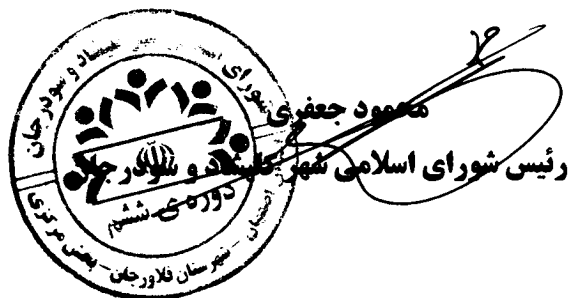 محمود جعفری
رئیس شورای اسلامی شهر کلیشاد و سودرجان
شورای اسلامی شهر کلیشاد و سودرجان
دوره‌ی ششم
اصفهان - شهرستان فلاورجان - بخش مرکزی